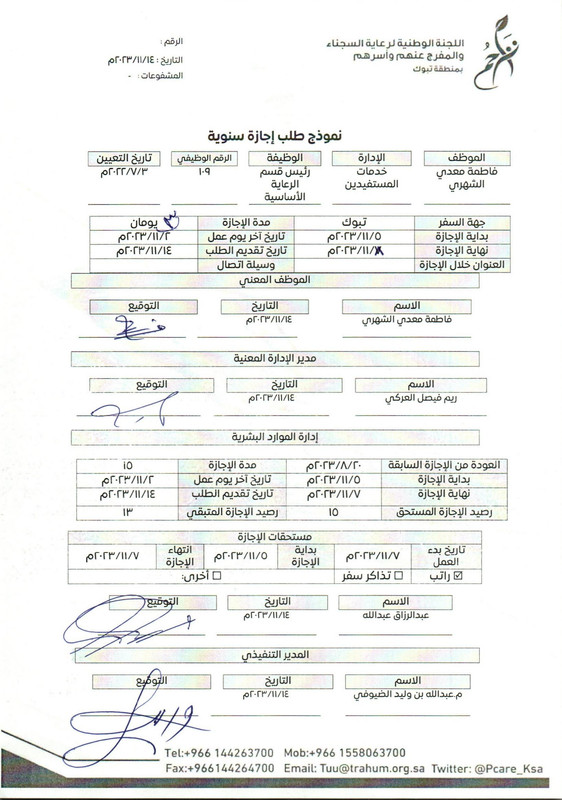 تراحم
اللجنة الوطنية لرعاية السجناء
والمفرج عنهم وأسرهم
بمنطقة تبوك
الرقم :
التاريخ : ٢٠٢٣/١١/١٤م
المشفوعات : -
نموذج طلب إجازة سنوية
الموظف الإدارة الوظيفة الرقم الوظيفي تاريخ التعيين
فاطمة معدي الشهري خدمات المستفيدين رئيس قسم الرعاية الأساسية ١٠٩ ٢٠٢٢/٧/٣م
جهة السفر تبوك مدة الإجازة ٣ يومان
بداية الإجازة ٢٠٢٣/١١/٥م تاريخ آخر يوم عمل ٢٠٢٣/١١/٢م
نهاية الإجازة ٢٠٢٣/١١/ م تاريخ تقديم الطلب ٢٠٢٣/١١/١٤م
العنوان خلال الإجازة وسيلة اتصال
الموظف المعني
الاسم التاريخ التوقيع
فاطمة معدي الشهري ٢٠٢٣/١١/١٤م
مدير الإدارة المعنية
الاسم التاريخ التوقيع
ريم فيصل العركي ٢٠٢٣/١١/١٤م
إدارة الموارد البشرية
العودة من الإجازة السابقة ٢٠٢٣/٨/٢٠م مدة الإجازة ١٥
بداية الإجازة ٢٠٢٣/١١/٥م تاريخ آخر يوم عمل ٢٠٢٣/١١/٢م
نهاية الإجازة ٢٠٢٣/١١/٧م تاريخ تقديم الطلب ٢٠٢٣/١١/١٤م
رصيد الإجازة المستحق ١٥ رصيد الإجازة المتبقي ١٣
مستحقات الإجازة
تاريخ بدء العمل ٢٠٢٣/١١/٧م بداية الإجازة ٢٠٢٣/١١/٥م انتهاء الإجازة ٢٠٢٣/١١/٧م
☑ راتب ☐ تذاكر سفر ☐ أخرى:
الاسم التاريخ التوقيع
عبدالرزاق عبدالله ٢٠٢٣/١١/١٤م
المدير التنفيذي
الاسم التاريخ التوقيع
م.عبدالله بن وليد الضيوفي ٢٠٢٣/١١/١٤م
Tel:+966 144263700 Mob:+966 1558063700
Fax:+966144264700 Email: Tuu@trahum.org.sa Twitter: @Pcare_Ksa